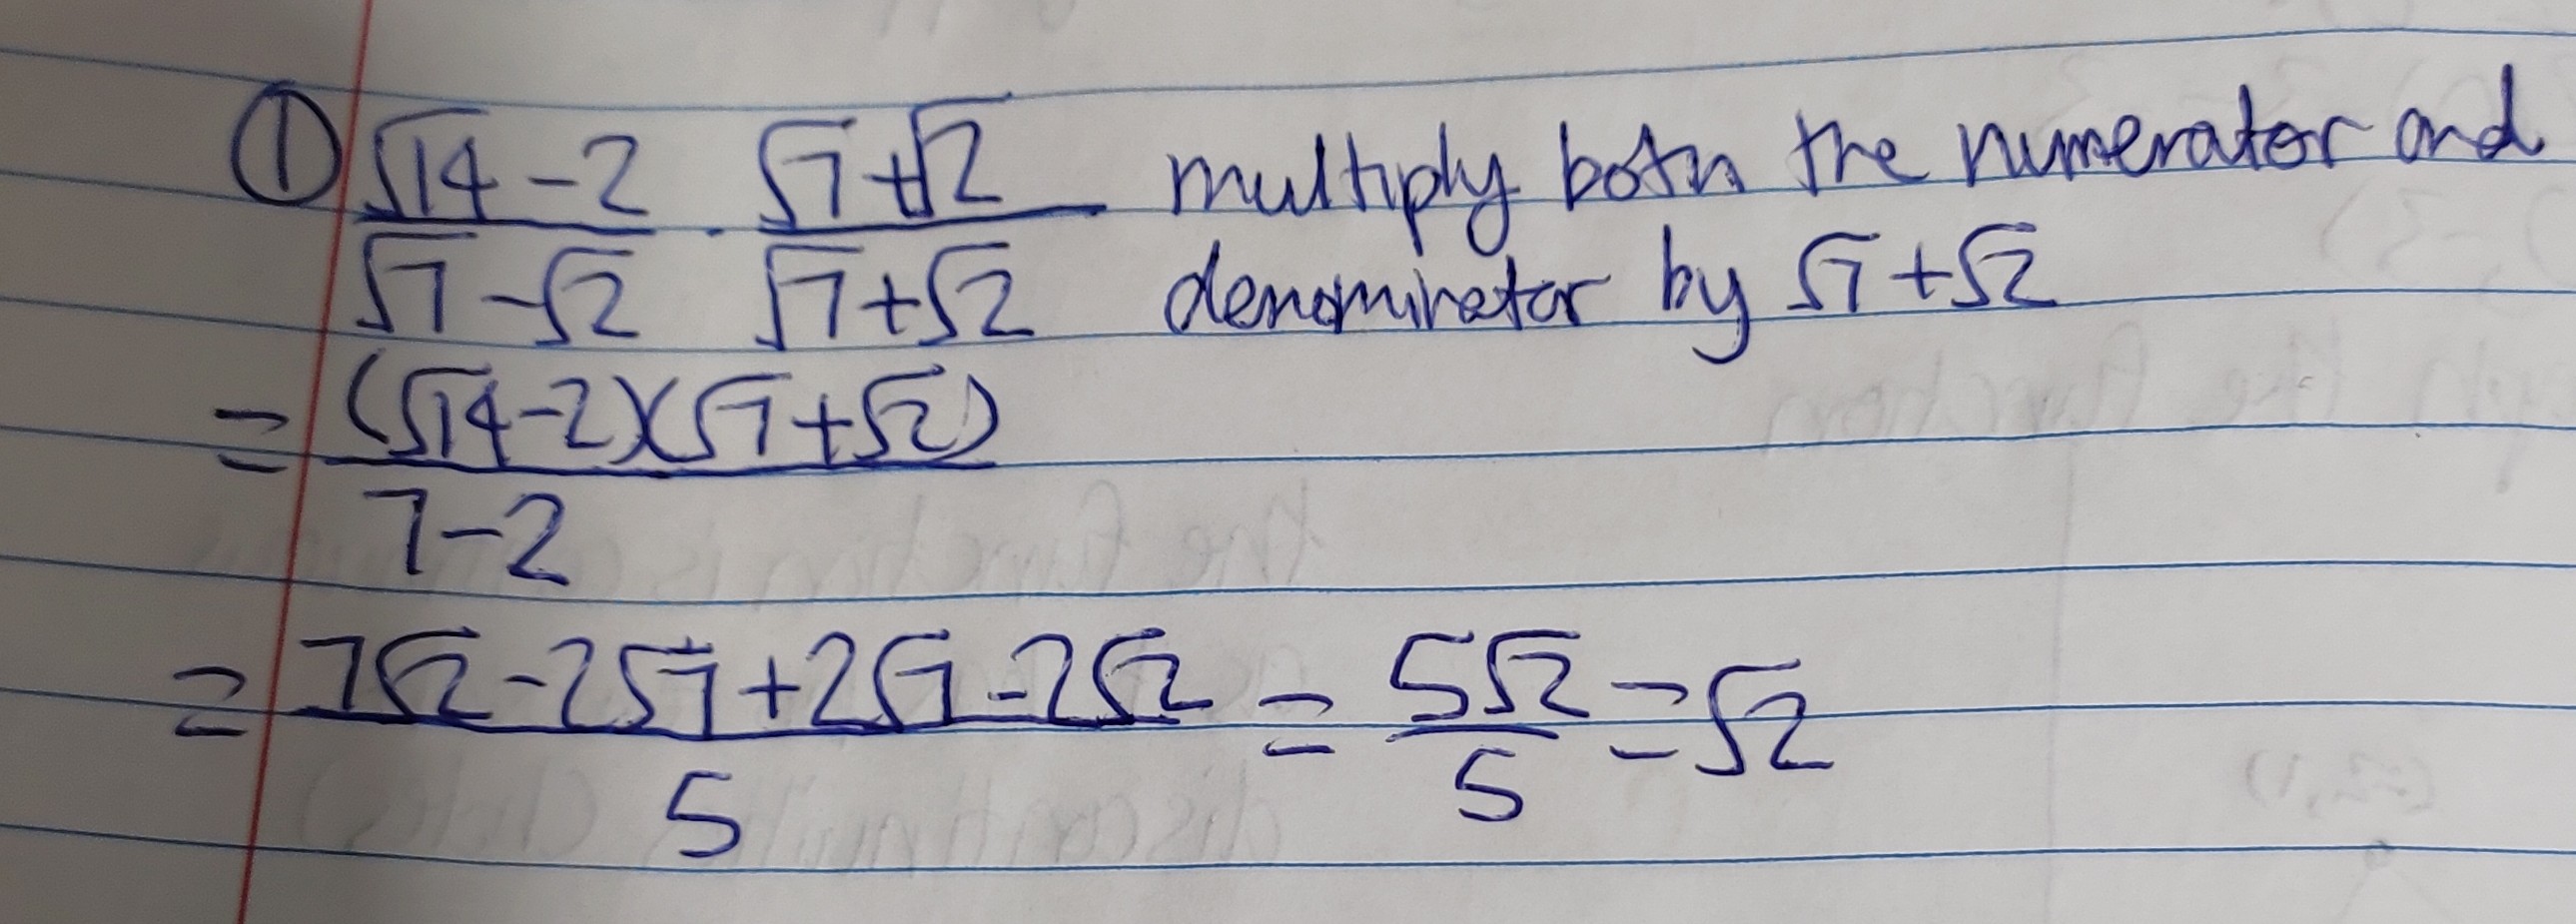 ① (√14 - 2)/(√7 - √2) · (√7 + √2)/(√7 + √2) multiply both the numerator and
denominator by √7 + √2
= (√14 - 2)(√7 + √2)/(7 - 2)
= (7√2 - 2√7 + 2√7 - 2√2)/5 = 5√2/5 = √2